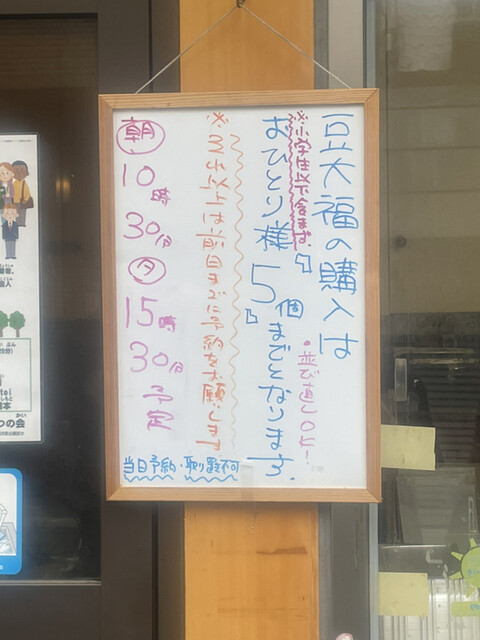 豆大福の購入は
※小学生以下含まず。
おひとり様5個までとなります。
・並び直しOK!
※31コ以上は前日までに予約をお願いします
朝
10時
30分
夕
15時
30分
予定
当日予約・取り置き不可
つの会